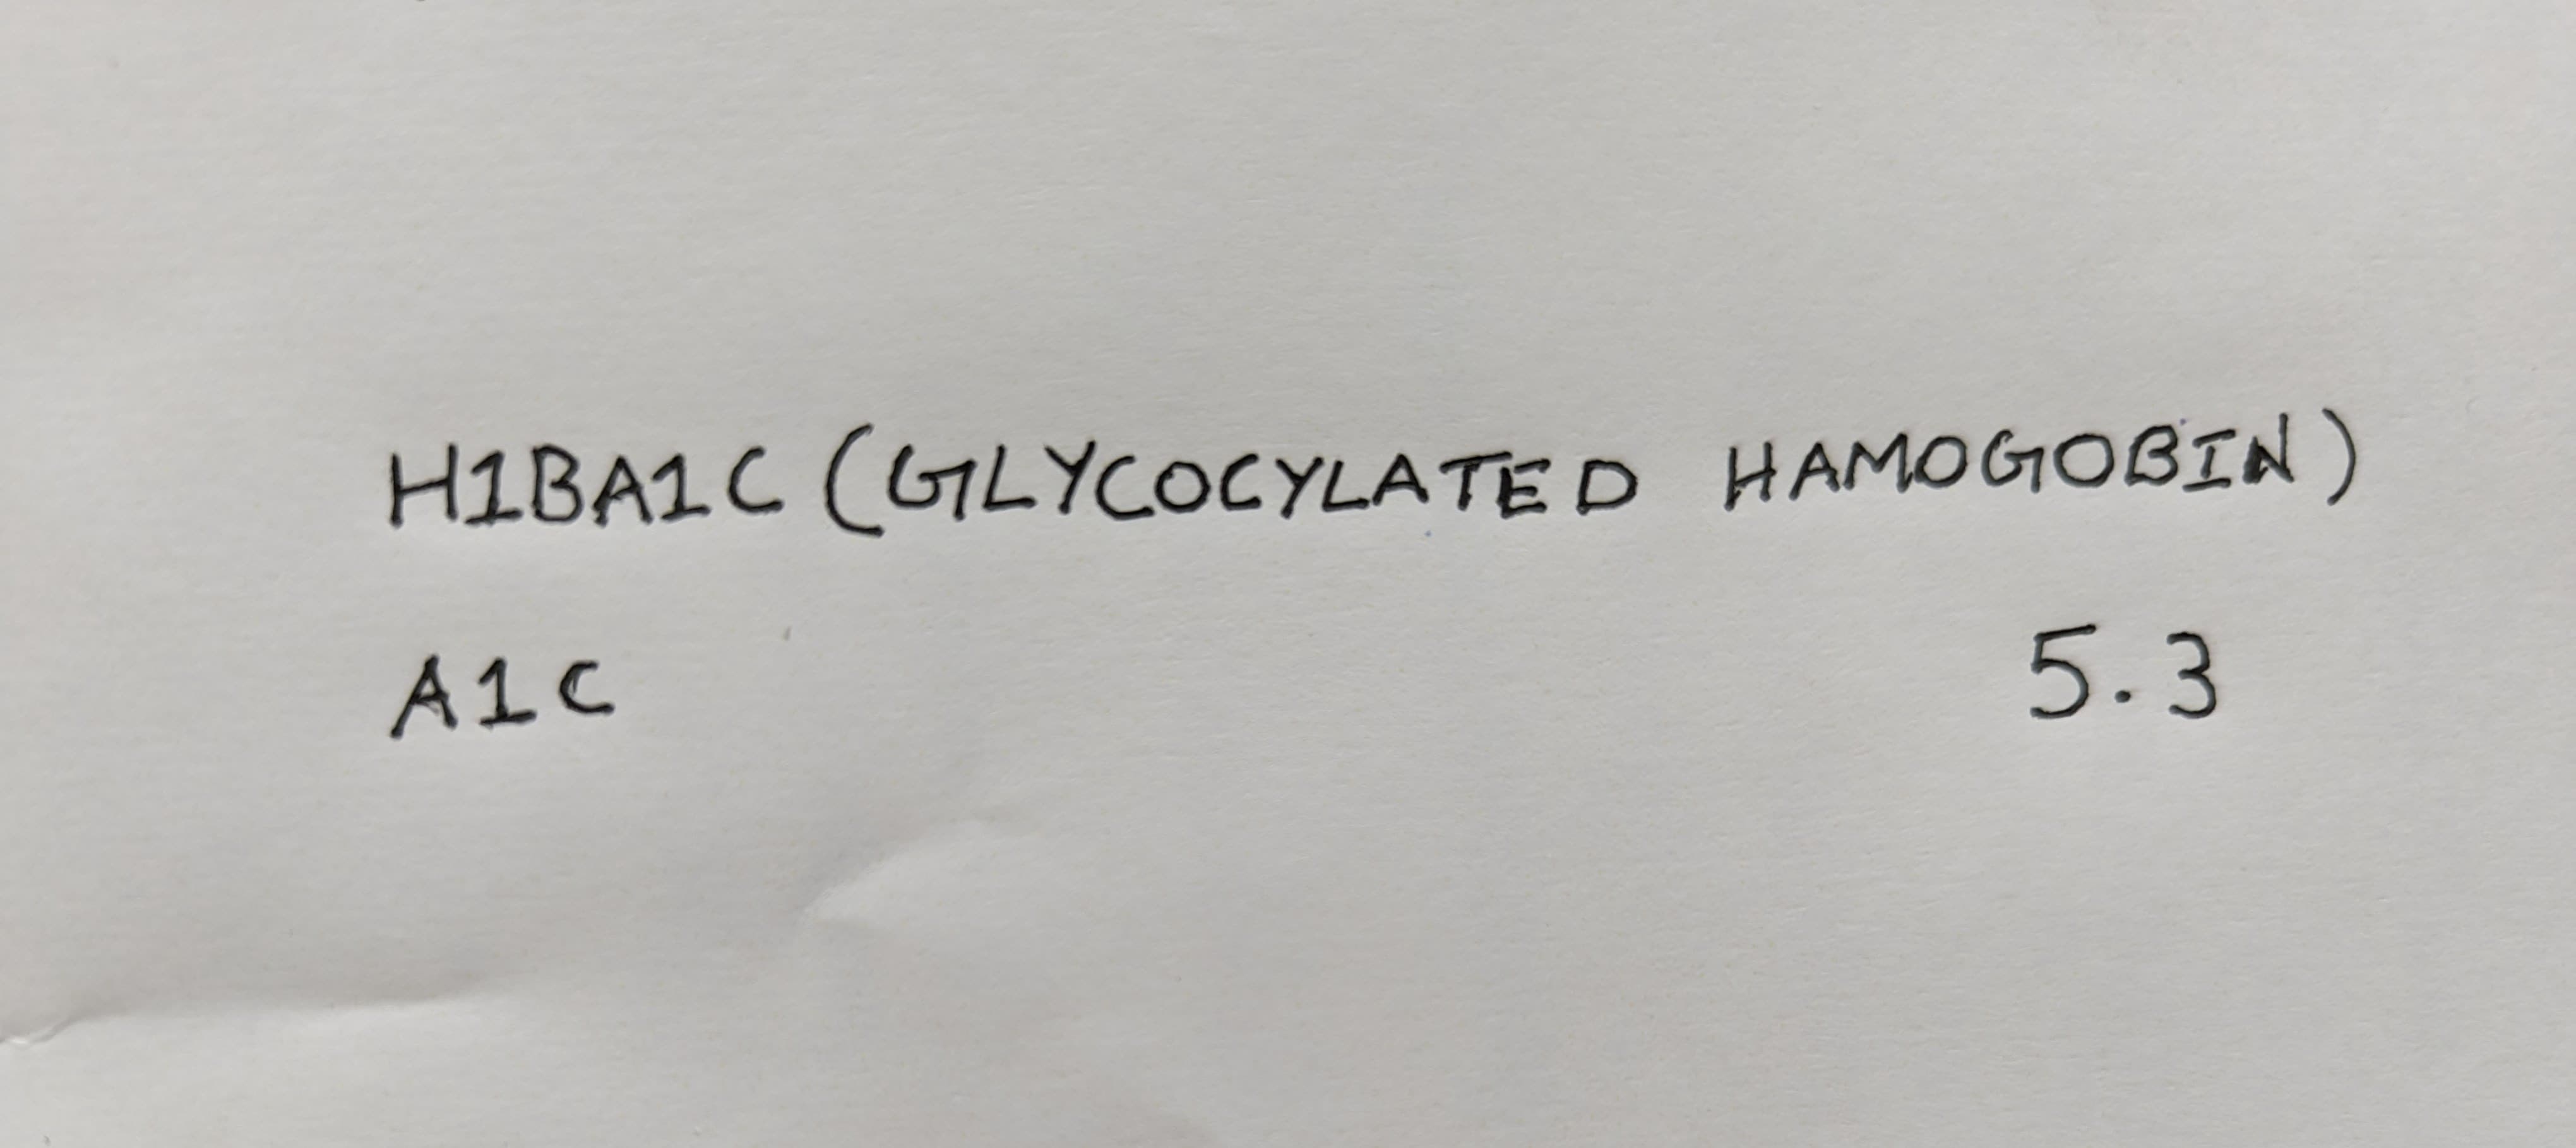 H1BA1C (GLYCOCYLATED HAMOGOBIN)
A1C 5.3